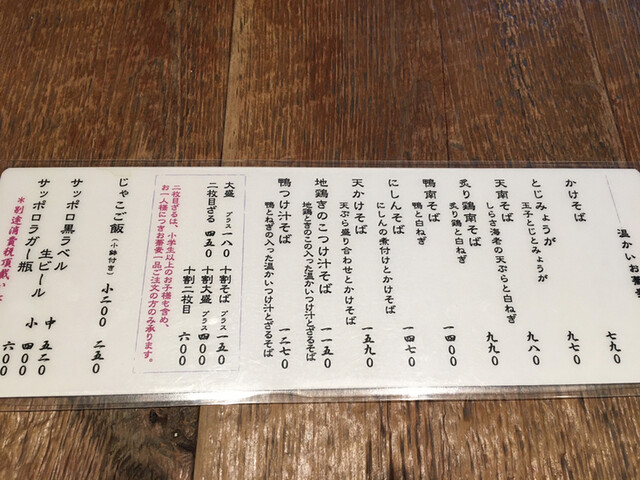 温かいお蕎
かけそば 七九0
とじみょうが 九七0
玉子とじとみょうが
天南そば 九八0
しらさ海老の天ぷらと白ねぎ
炙り鶏南そば 九九0
炙り鶏と白ねぎ
鴨南そば 一四00
鴨と白ねぎ
にしんそば 一四七0
にしんの煮付けとかけそば
天かけそば 一五九0
天ぷら盛り合わせとかけそば
地鶏きのこつけ汁そば 一一五0
地鶏ときのこの入った温かいつけ汁とざるそば
鴨つけ汁そば 一二七0
鴨とねぎの入った温かいつけ汁とざるそば
大盛 プラス 一八0 十割そば プラス 一五0
二枚目ざる 四五0 十割大盛 プラス 四00
十割二枚目 六00
二枚目ざるは、小学生以上のお子様も含め、
お一人様につきお蕎麦一品ご注文の方のみ承ります。
じゃこご飯(小鉢付き) 小二00 二五0
サッポロ黒ラベル
生ビール 中 五二0
小 四00
サッポロラガー瓶 六00
*別途消費税頂戴い